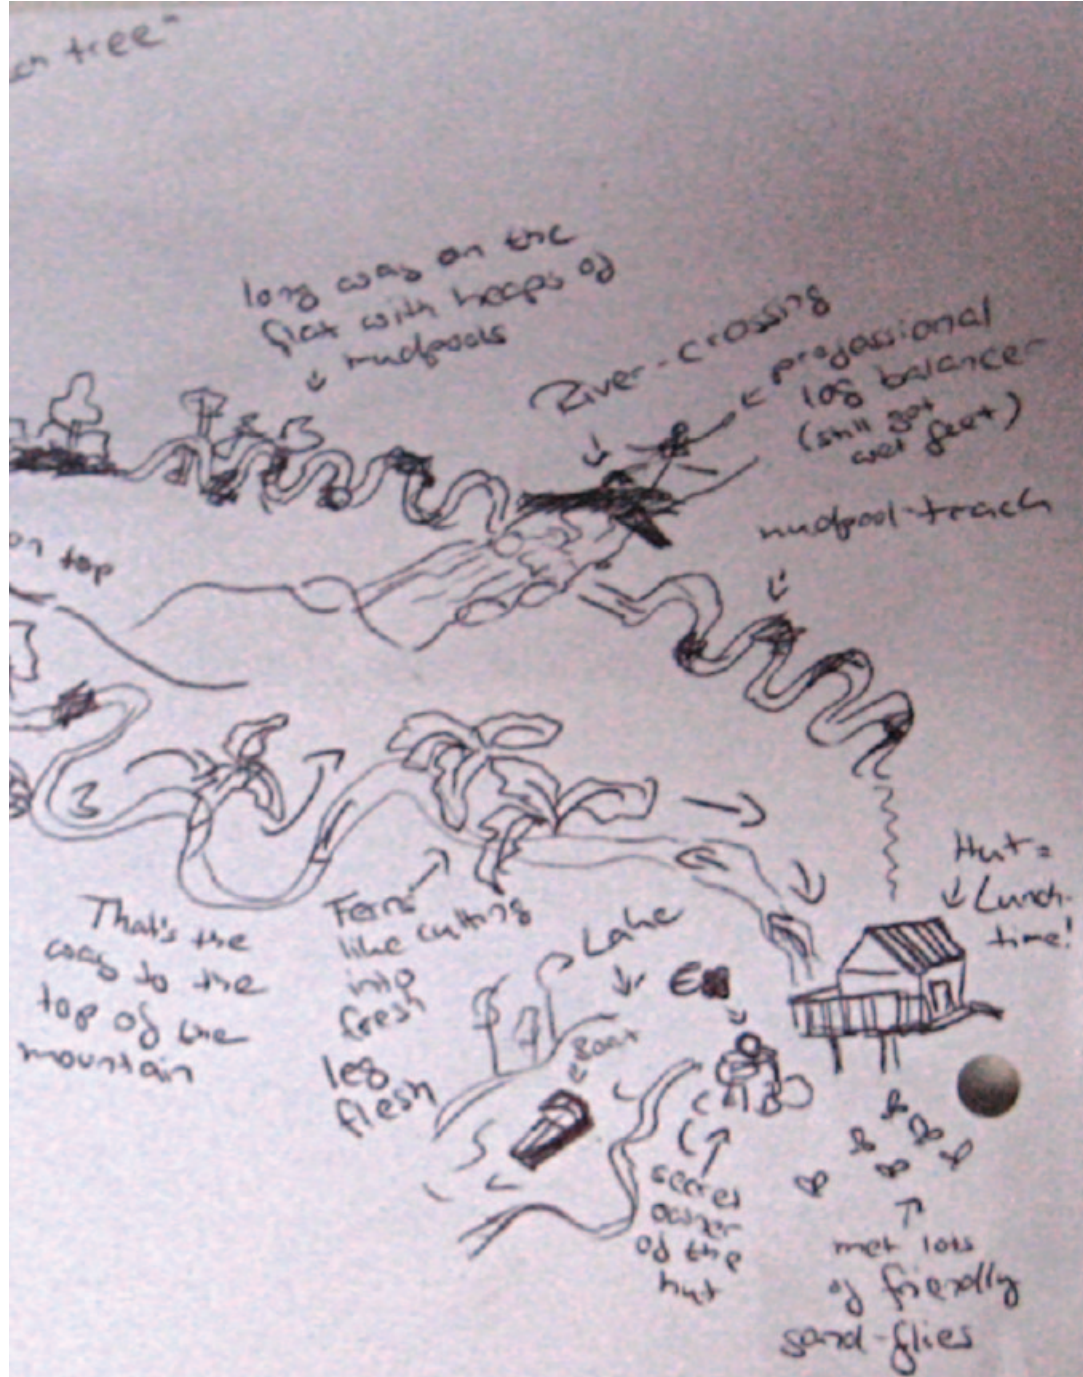 tree"
long way on the
flat with heaps of
mudpools
River-crossing
professional
log balancer
(still got
wet feet)
mudpool-track
on top
Hut =
Lunch-
time!
That's the
way to the
top of the
mountain
Ferns
like cutting
into
fresh
leg
flesh
Lake
Boat
secret
owner
of the
hut
met lots
of friendly
sand-flies